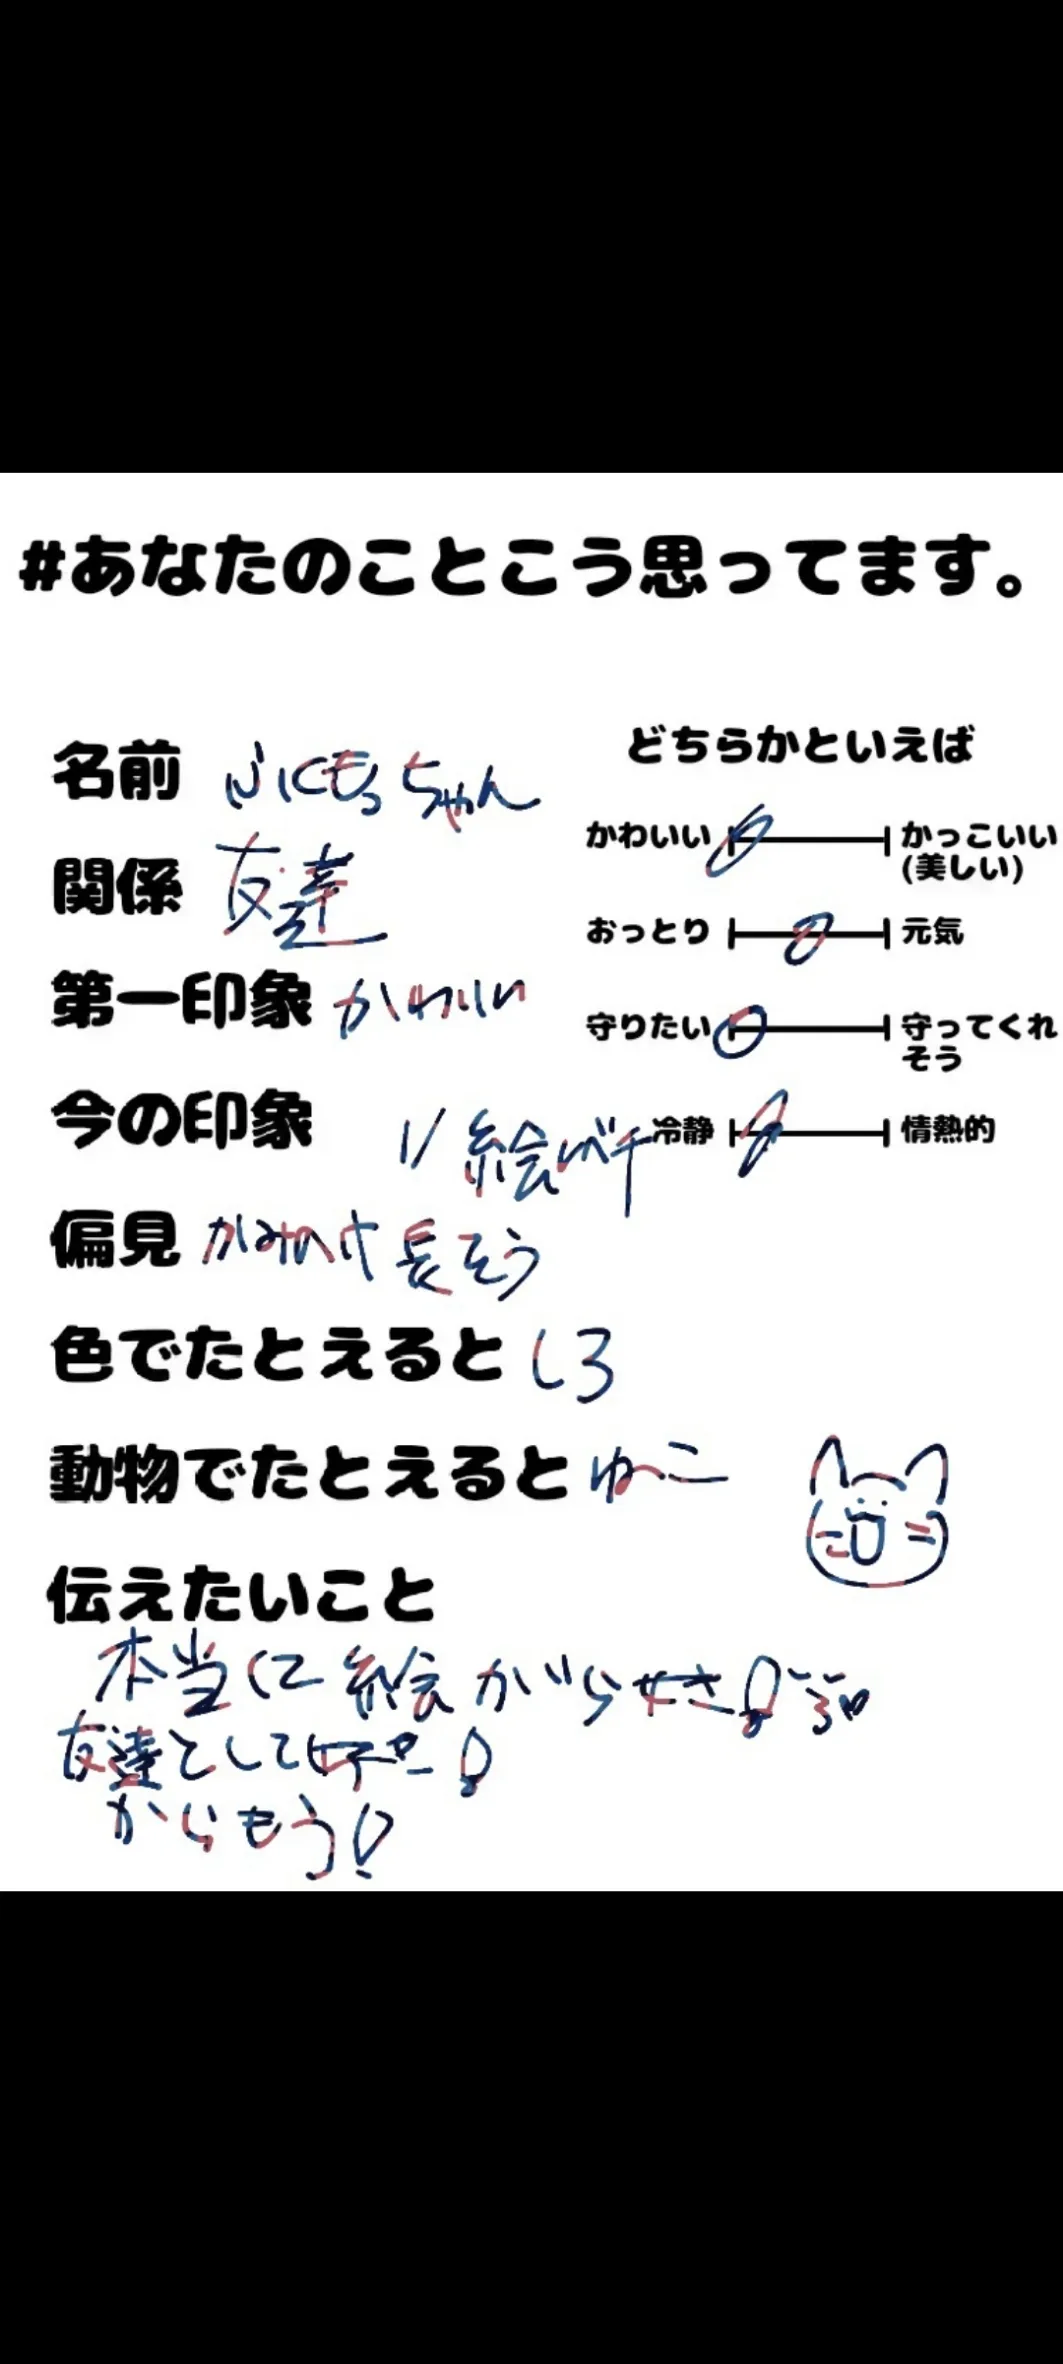 #あなたのことこう思ってます。
名前 ふにもっちゃん
関係 友達
第一印象 かわいい
今の印象 〃 絵が
偏見 かみのけ長そう
色でたとえると しろ
動物でたとえると ねこ
伝えたいこと
本当に絵が
友達として
どちらかといえば
かわいい かっこいい
(美しい)
おっとり 元気
守りたい 守ってくれ
そう
冷静 情熱的